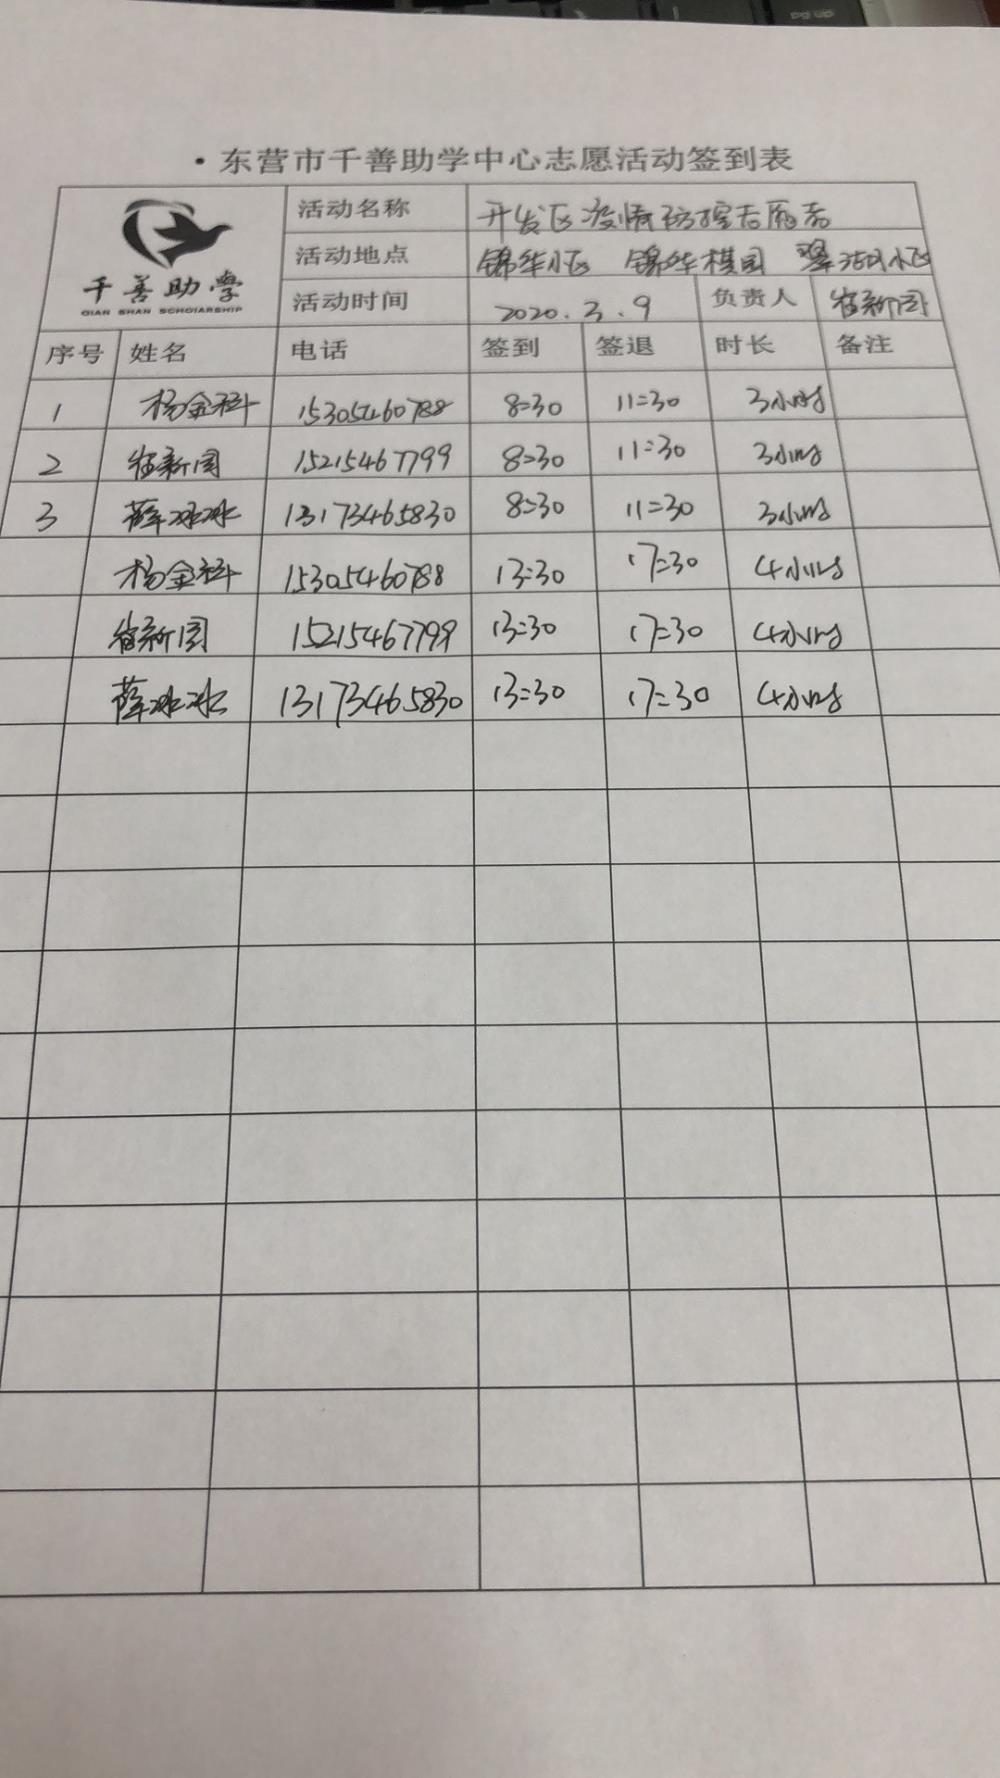 ·东营市千善助学中心志愿活动签到表
千善助学
QIAN SHAN SCHOLARSHIP
活动名称 开发区疫情防控志愿者
活动地点 锦华小区 锦华棋园 小区
活动时间 2020.3.9 负责人 新同
序号 姓名 电话 签到 签退 时长 备注
1 杨金科 15305460788 8:30 11:30 3小时
2 新同 15215467799 8:30 11:30 3小时
3 薛冰冰 13173465830 8:30 11:30 3小时
杨金科 15305460788 13:30 17:30 4小时
新同 15215467799 13:30 17:30 4小时
薛冰冰 13173465830 13:30 17:30 4小时